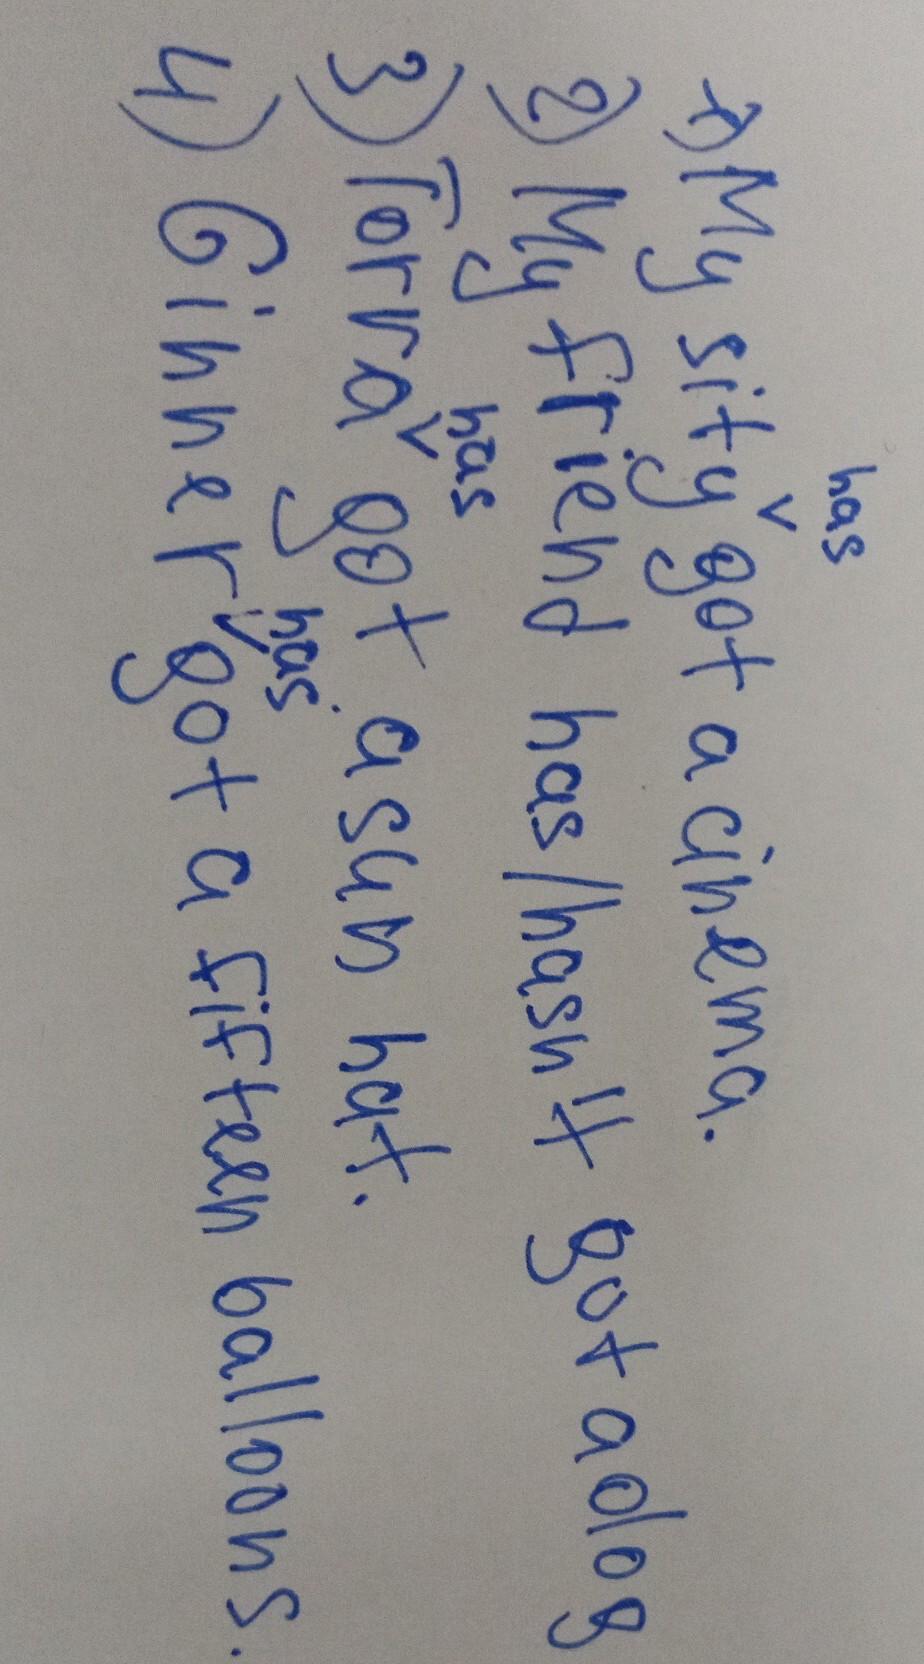 1) My sity has got a cinema.
2) My friend has/hasn't got a dog
3) Torra has got a sun hat.
4) Ginner has got a fifteen balloons.